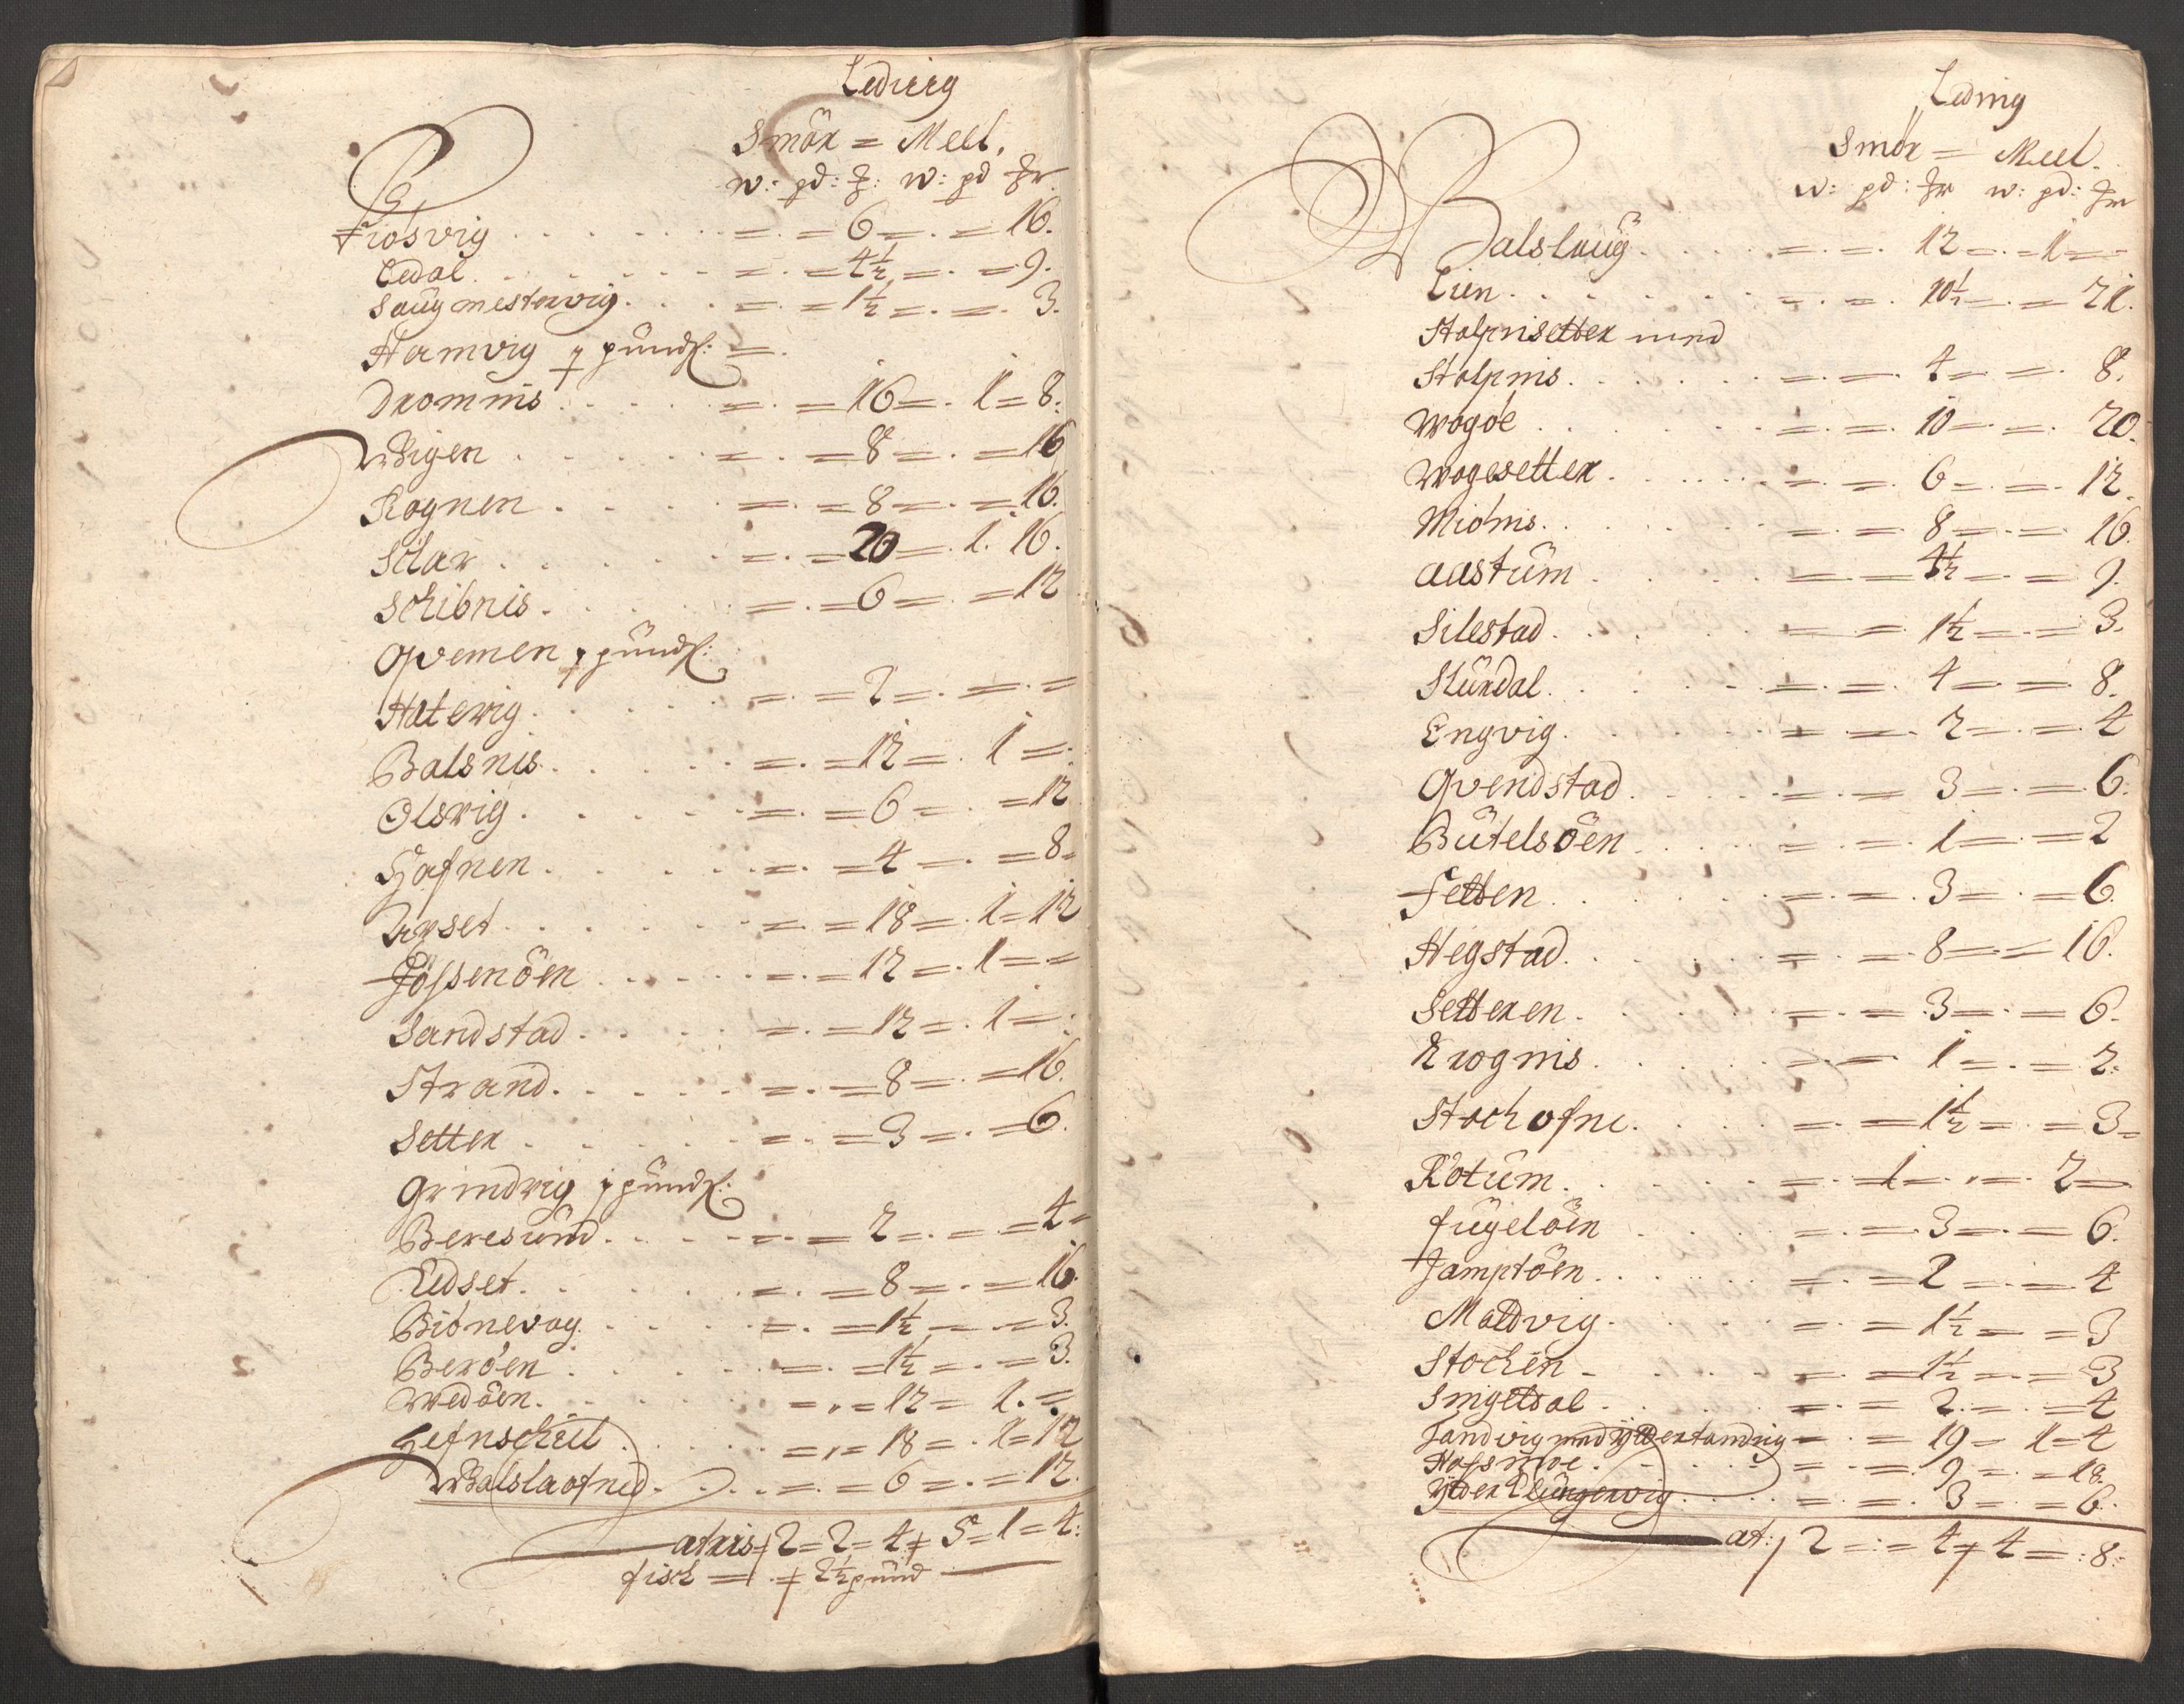 Leding
Smör = Meel.
w: pd: ℔: w: pd ℔r
Fiösvig . . . . = . = 6 = . = 16.
Eedal . . . . = . = 4½ = . = 9.
Saugmestervig . . . = . = 1½ = . = 3.
Hamvig 1 pund f: = .
Drommis . . . . = . = 16 = . 1 = 8:
Wigen . . . . = . = 8 = . = 16
Rognen . . . . = . = 8 = . = 16.
Selar . . . . = . = 20 = . 1. 16.
Schibnis . . . . = . = 6 = . = 12
Qvemen 1 pund f:
Hatevig . . . . = . = 2 = . = . =
Balsnis . . . . = . = 12 = . 1 = .
Olsvig . . . . = . = 6 = . = 12
Hafnen . . . . = . = 4 = . = 8 =
Urset . . . . = . = 18 = . 1 = 12
Jössenöen . . . . = . = 12 = . 1 = =
Sandstad . . . . = . = 12 = . 1 = .
Strand . . . . = . = 8 = . = 16.
Setter . . . . = . = 3 = . = 6.
Grindvig 1 pund f:
Beresund . . . . = . = 2 = . = 4 =
Eidset . . . . = . = 8 = . = 16.
Biönevog . . . . = . = 1½ = . = 3.
Beröen . . . . = . = 1½ = . = 3.
Wedöen . . . . = . = 12 = 1 . =
Hefnschiel . . . . = . = 18 = . 1 = 12
Walslaofned . . . = . = 6 = . = 12.
atais / 2 = 2 = 4 / 5 = 1 = 4:
fisch = . / 2½ pund
Leding
Smör = Meel.
w: pd: ℔r w: pd: ℔r
Walslaug . . . . = . = . 12 = . = 1 =
Lien . . . . = . = . 10½ = . = 21.
Stolpnisetter med
Stolpnis . . . . = . = . 4 = . = . 8.
Wogöe . . . . = . = . 10 = . = . 20.
Wogesetter . . . . = . = . 6 = . = . 12.
Miönis . . . . = . = 8 = . = . 16.
Aastum . . . . = . = 4½ = . = 9.
Silestad . . . . = . = 1½ = . = 3.
Slurdal . . . . = . = . 4 = . = 8.
Engvig . . . . = . = . 2 = . = 4
Qvendstad . . . . = . = 3 = . = 6.
Butelsöen . . . . = . = . 1 = . = 2
Fetten . . . . = . = . 3 = . = 6.
Hegstad . . . . = . = . 8 = . = 16.
Setteren . . . . = . = . 3 = . = 6.
Krognis . . . . = . = . 1 = . = 2.
Stochofne . . . . = . = 1½ = . = 3 =
Rotum . . . . = . = 1 = . = . 2 =
fugelöen . . . . = . = . 3 = . = 6.
Jamptöen . . . . = . = 2 = . = 4
Mattvig . . . . = . = 1½ = = 3
Stochen . . . . = . = 1½ = . = 3
Smgetdal . . . . = . = 2 . = . = 4
Tandvig med ÿttertandvig = . = 19 = 1 = 4
Hafsmoe . . . . = . = . 9 = . = 18.
ÿtter Elungervig . . . = . = . 3 = . = 6.
at: / 2 = . = 4 / 4 = . 8.